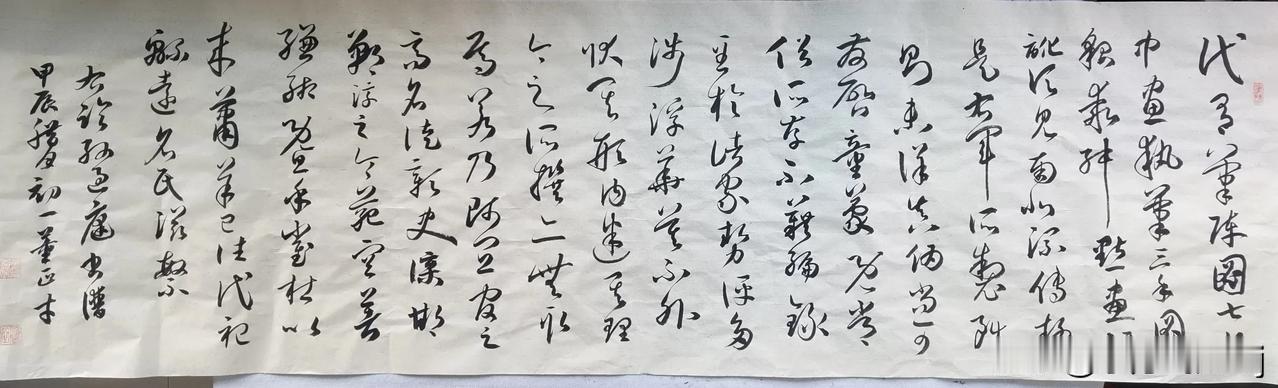 代有筆陣圖七行
中畫執筆三手圖
貌乖舛點畫湮
訛頃見南北流傳疑
是右軍所製雖
則未詳真偽尚可
發啟童蒙既常
俗所存不藉編錄
至於諸家勢評多
涉浮華莫不外
狀其形內迷其理
今之所撰亦無取
焉若乃師宜官之
高名徒彰史牒邯
鄲淳之令範空著
縑緗暨乎崔杜以
來蕭羊已往代祀
緜遠名氏滋繁
右錄孫過庭書譜
甲辰臘月初一董正才